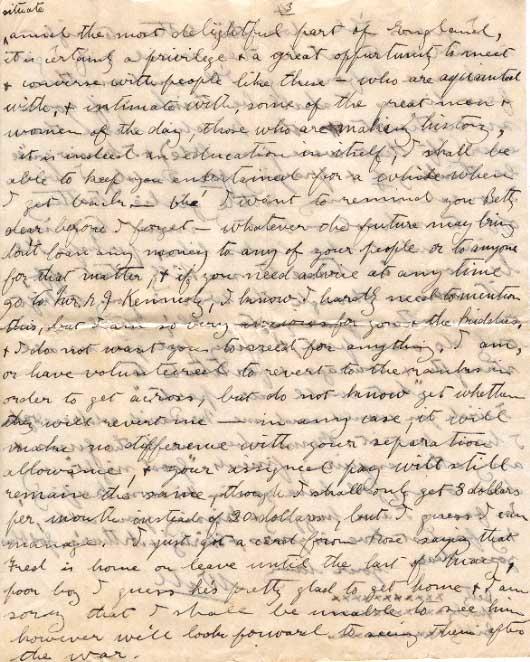 situate 3
amid the most delightful part of England,
it is certainly a privilege & a great opportunity to meet
& converse with people like these - who are aquainted
with, & intimate with, some of the great men &
women of the day, those who are making history,
it is indeed an education in itself, I shall be
able to keep you entertained for a while when
I get back. I want to remind you Betty
dear before I forget - whatever the future may bring
don't loan any money to any of your people or to anyone
for that matter, & if you need advice at any time
go to Mr. Kennedy, I know I hardly need to mention
this, but I am so very anxious for you & the kiddies
& I do not want you to need for anything. I am,
or have volunteered to revert to the ranks in
order to get across, but do not know yet whether
they will revert me - in any case it will
make no difference with your separation
allowance, & your assigned pay will still
remain the same, though I shall only get 3 dollars
per month instead of 20 dollars, but I guess I can
manage. I just got a card from Rose saying that
Fred is home on leave until the last of
poor boy I guess he's pretty glad to get home & I am
sorry that I shall be unable to see him
however will look forward to seeing them after
the war.